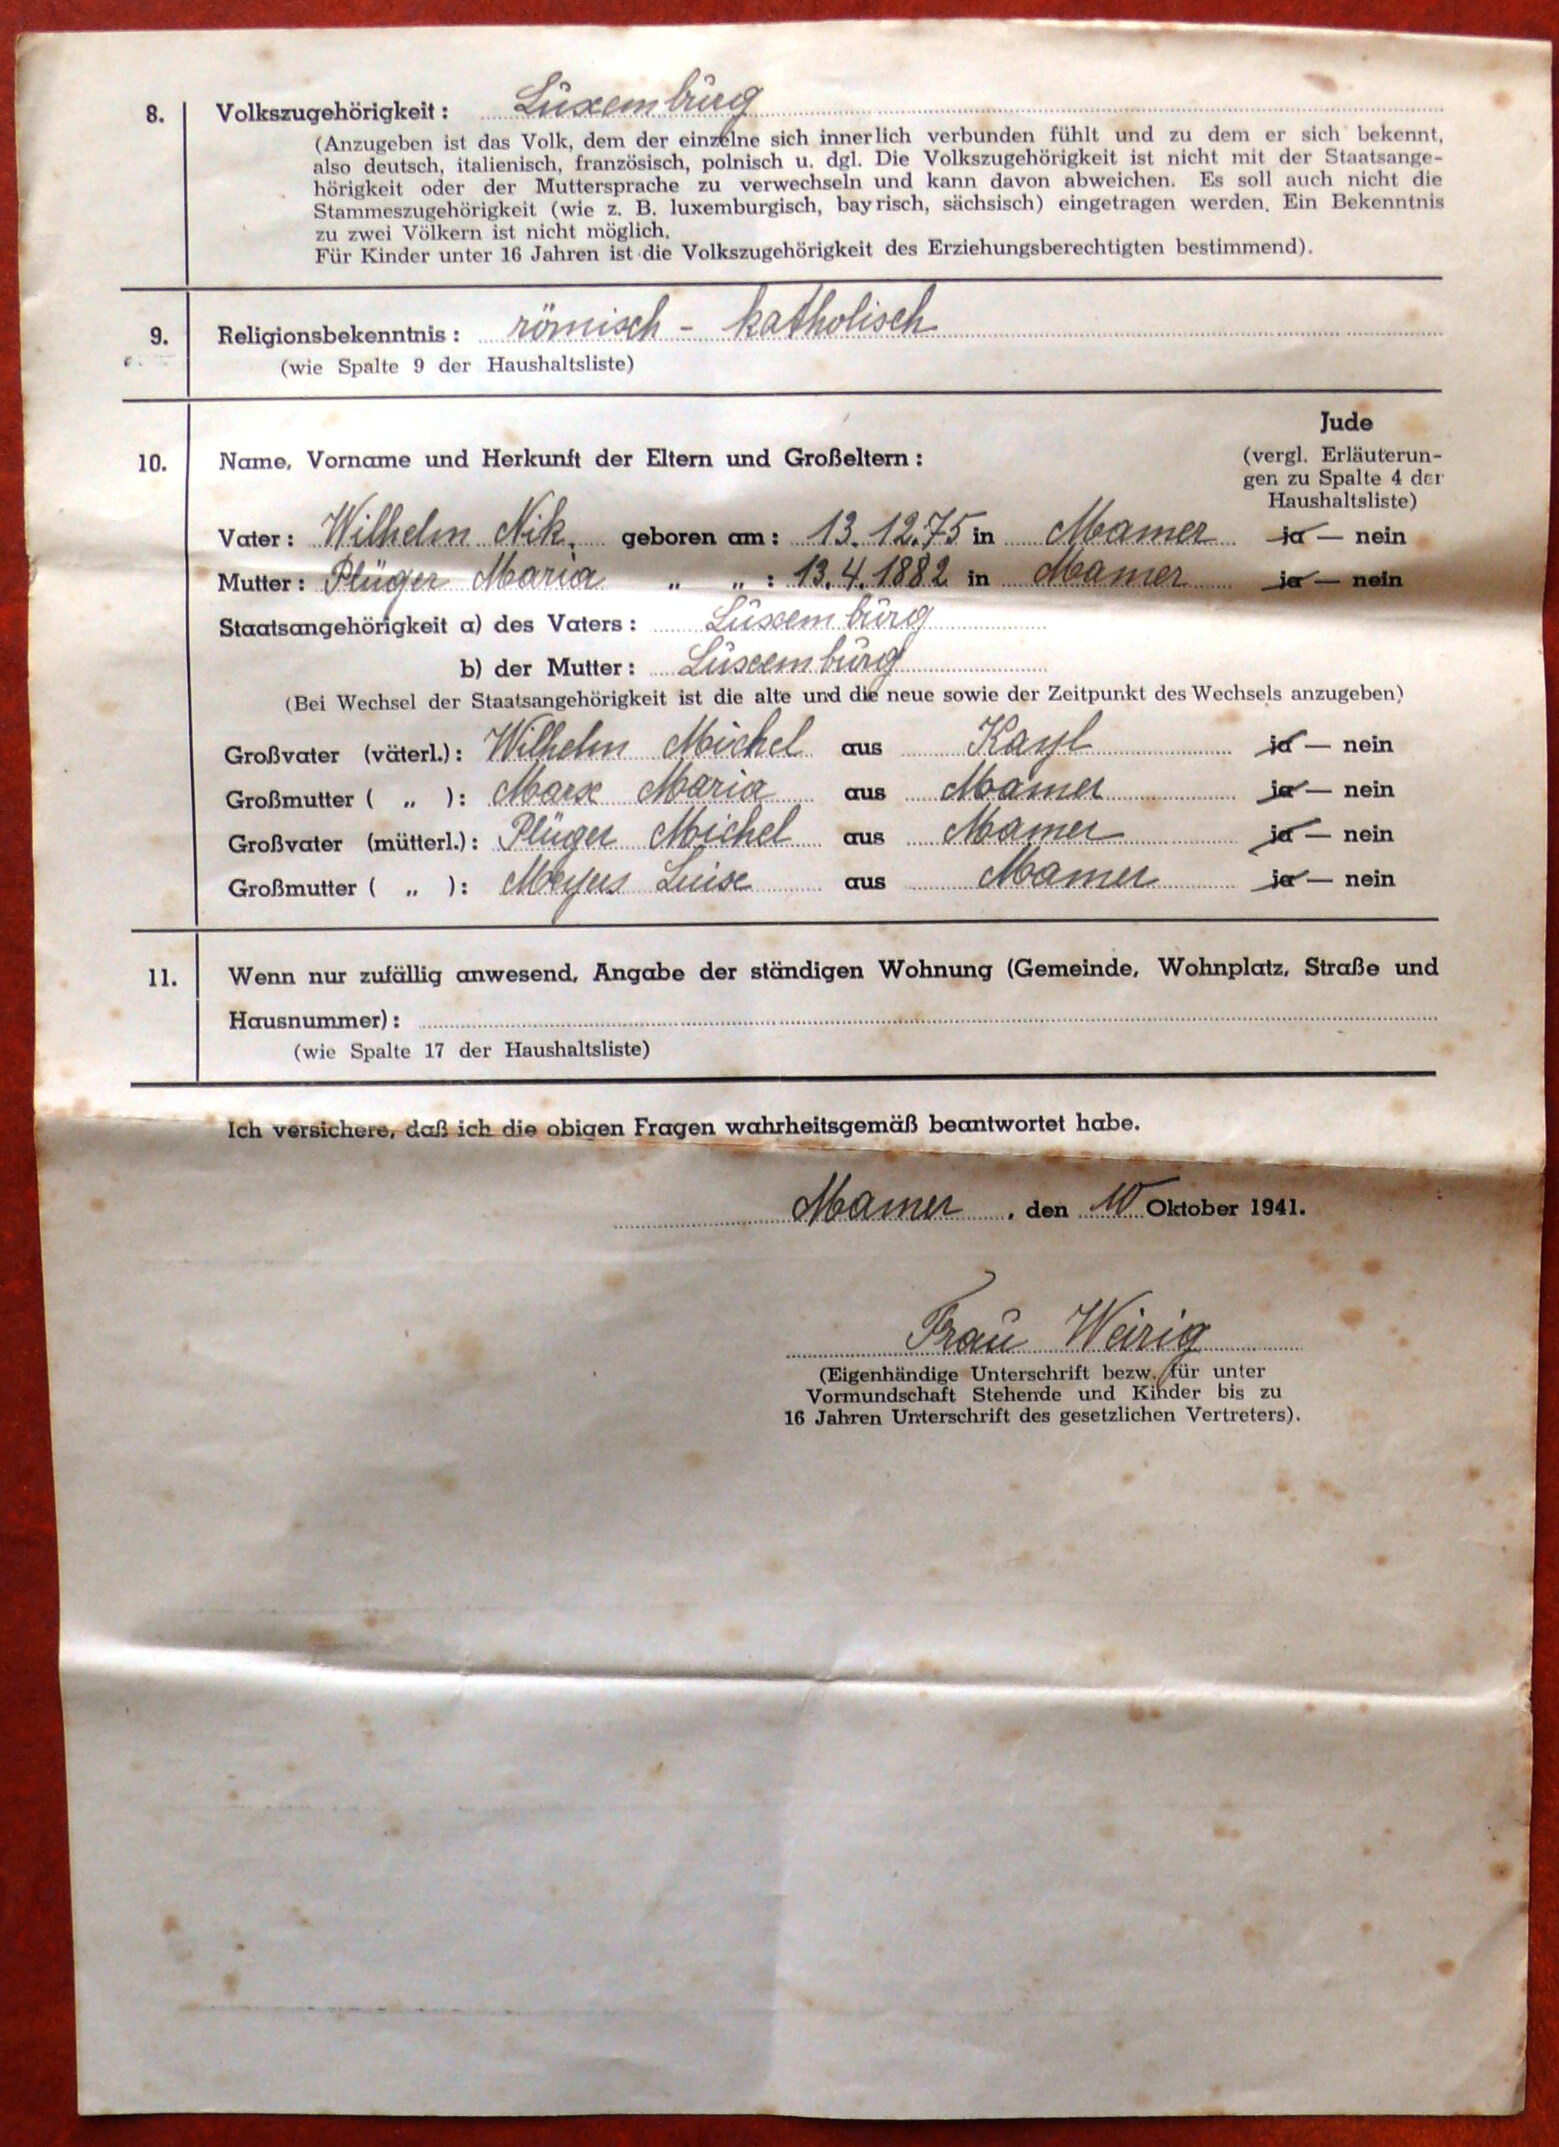 8. Volkszugehörigkeit: Luxemburg
(Anzugeben ist das Volk, dem der einzelne sich innerlich verbunden fühlt und zu dem er sich bekennt,
also deutsch, italienisch, französisch, polnisch u. dgl. Die Volkszugehörigkeit ist nicht mit der Staatsange-
hörigkeit oder der Muttersprache zu verwechseln und kann davon abweichen. Es soll auch nicht die
Stammeszugehörigkeit (wie z. B. luxemburgisch, bayrisch, sächsisch) eingetragen werden. Ein Bekenntnis
zu zwei Völkern ist nicht möglich.
Für Kinder unter 16 Jahren ist die Volkszugehörigkeit des Erziehungsberechtigten bestimmend).
9. Religionsbekenntnis: römisch - katholisch
(wie Spalte 9 der Haushaltsliste)
Jude
10. Name, Vorname und Herkunft der Eltern und Großeltern:
(vergl. Erläuterun-
gen zu Spalte 4 der
Haushaltsliste)
Vater: Wilhelm Nik. geboren am: 13.12.75 in Mamer ja — nein
Mutter: Plüger Maria „ „ : 13.4.1882 in Mamer ja — nein
Staatsangehörigkeit a) des Vaters: Luxemburg
b) der Mutter: Luxemburg
(Bei Wechsel der Staatsangehörigkeit ist die alte und die neue sowie der Zeitpunkt des Wechsels anzugeben)
Großvater (väterl.): Wilhelm Michel aus Kayl ja — nein
Großmutter ( „ ): Marx Maria aus Mamer ja — nein
Großvater (mütterl.): Plüger Michel aus Mamer ja — nein
Großmutter ( „ ): Meyers Luise aus Mamer ja — nein
11. Wenn nur zufällig anwesend, Angabe der ständigen Wohnung (Gemeinde, Wohnplatz, Straße und
Hausnummer):
(wie Spalte 17 der Haushaltsliste)
Ich versichere, daß ich die obigen Fragen wahrheitsgemäß beantwortet habe.
Mamer, den 10 Oktober 1941.
Frau Weirig
(Eigenhändige Unterschrift bezw. für unter
Vormundschaft Stehende und Kinder bis zu
16 Jahren Unterschrift des gesetzlichen Vertreters).